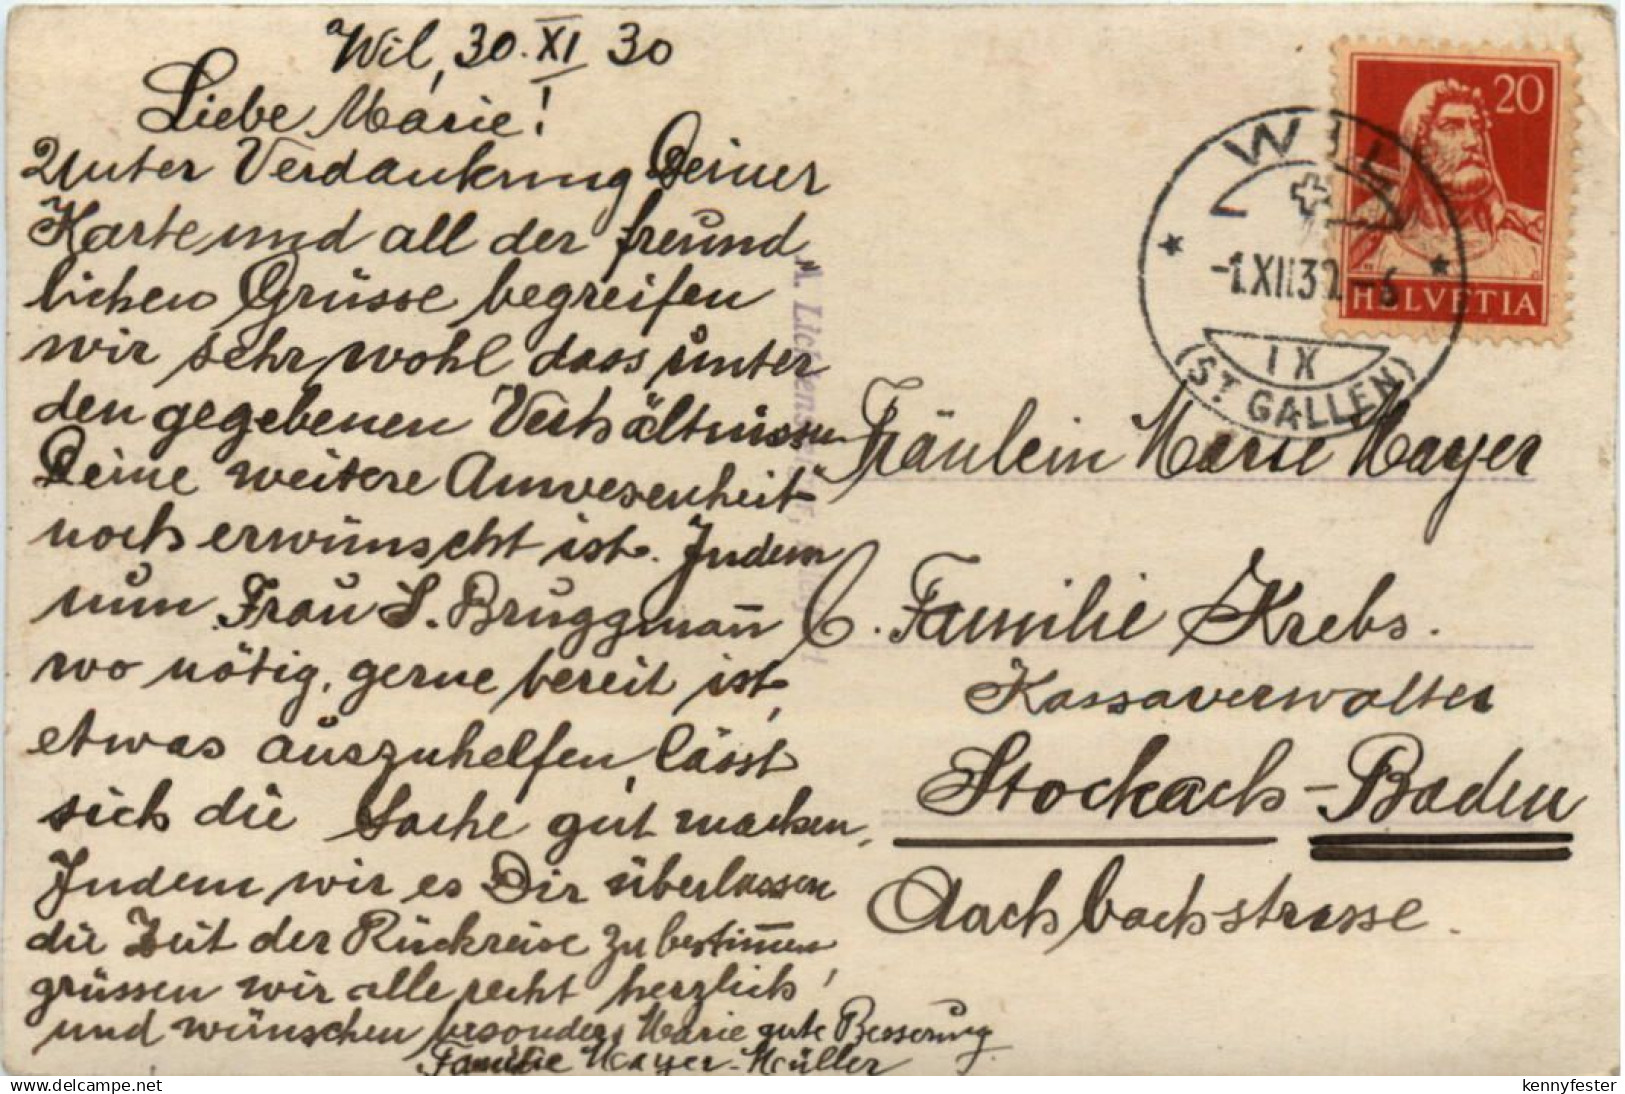 Wil, 30. XI 30
Liebe Marie!
Unter Verdankung Deiner
Karte und all der freund
lichen Grüsse begreifen
wir sehr wohl dass unter
den gegebenen Verhältnissen
Deine weitere Anwesenheit
noch erwünscht ist. Indem
nun Frau S. Bruggmañ
wo nötig, gerne bereit ist,
etwas auszuhelfen, lässt
sich die Sache gut machen,
Indem wir es Dir überlassen
die Zeit der Rückreise zu bestim̄en
grüssen wir alle recht herzlich!
und wünschen besonders Marie gute Besserung
Familie Mayer-Müller
A. Lichtens
20
HELVETIA
WIL
-1.XII.30.-6
IX
(ST. GALLEN)
Fräulein Marie Mayer
C. Familie Krebs.
Kassaverwalter
Stockach-Baden
Aachbachstrasse.
delcampe.net
kennyfester